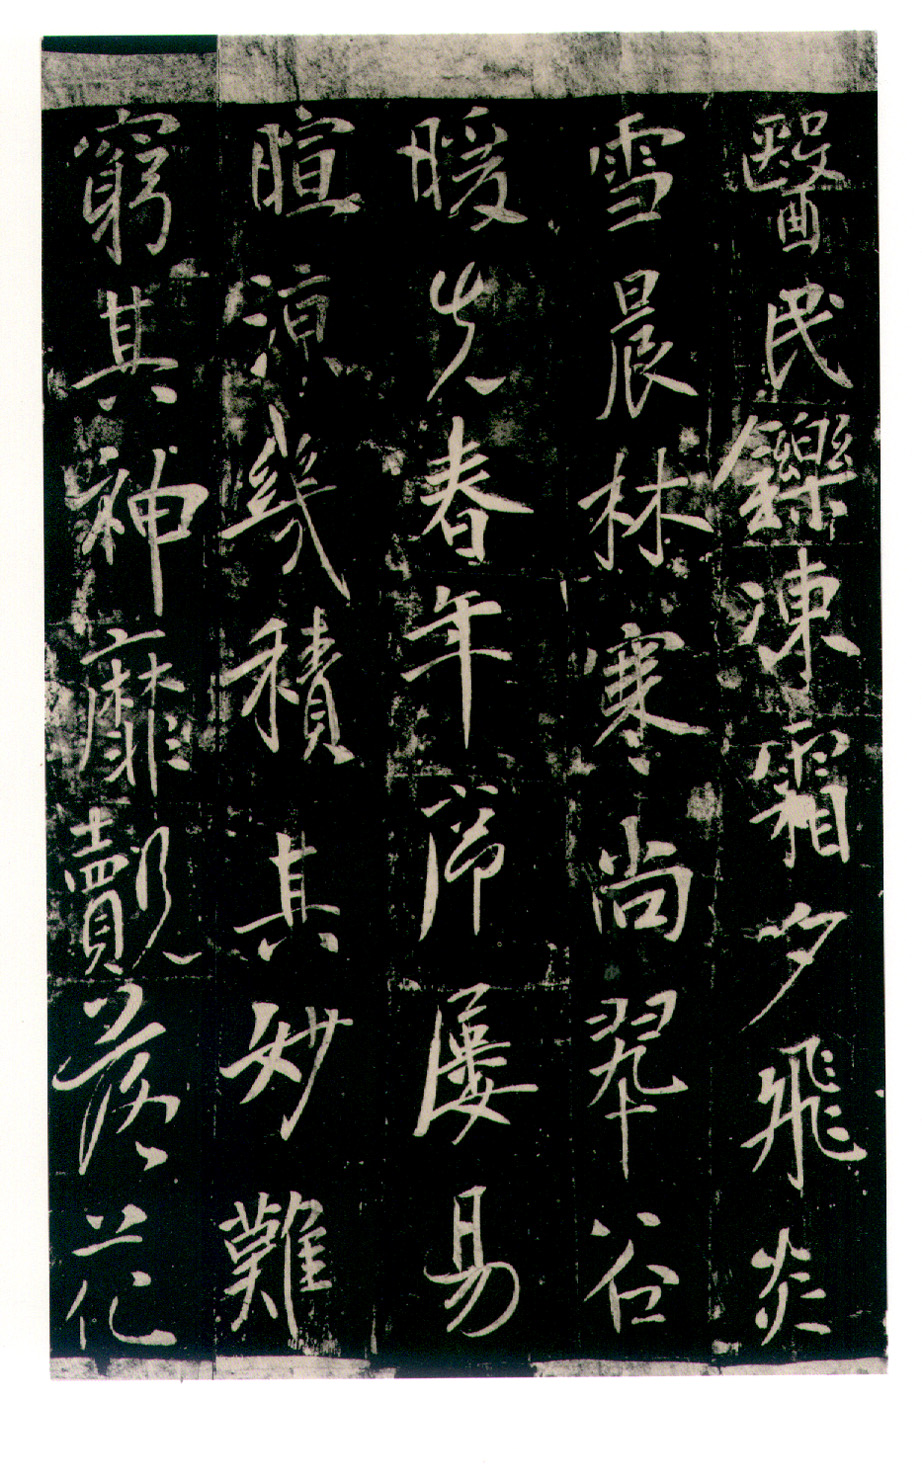 醫民鑠凍霜夕飛炎
雪晨林寒尚翠谷
暖先春年屢易
暄涼幾積其妙難
窮其神靡覿落花